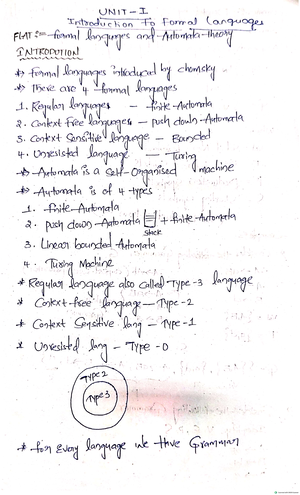 UNIT-I
Introduction To Formal Languages
FLAT:- formal languages and Automata theory
INTRODUTION
* formal languages introduced by chomsky
* There are 4 formal languages
1. Regular languages — finite-Automata
2. Context free languages — push down-Automata
3. Context Sensitive language — Bounded
4. Unresisted language — Turing
* Automata is a Self-Organised machine
* Automata is of 4 types
1. finite Automata
2. push down-Automata + finite-Automata
stack
3. Linear bounded Automata
4. Turing Machine
* Regular language also called Type-3 language
* Context-free language — Type-2
* Context Sensitive lang — Type-1
* Unresisted lang — Type-0
Type 2
Type 3
* for Every language we have Grammar